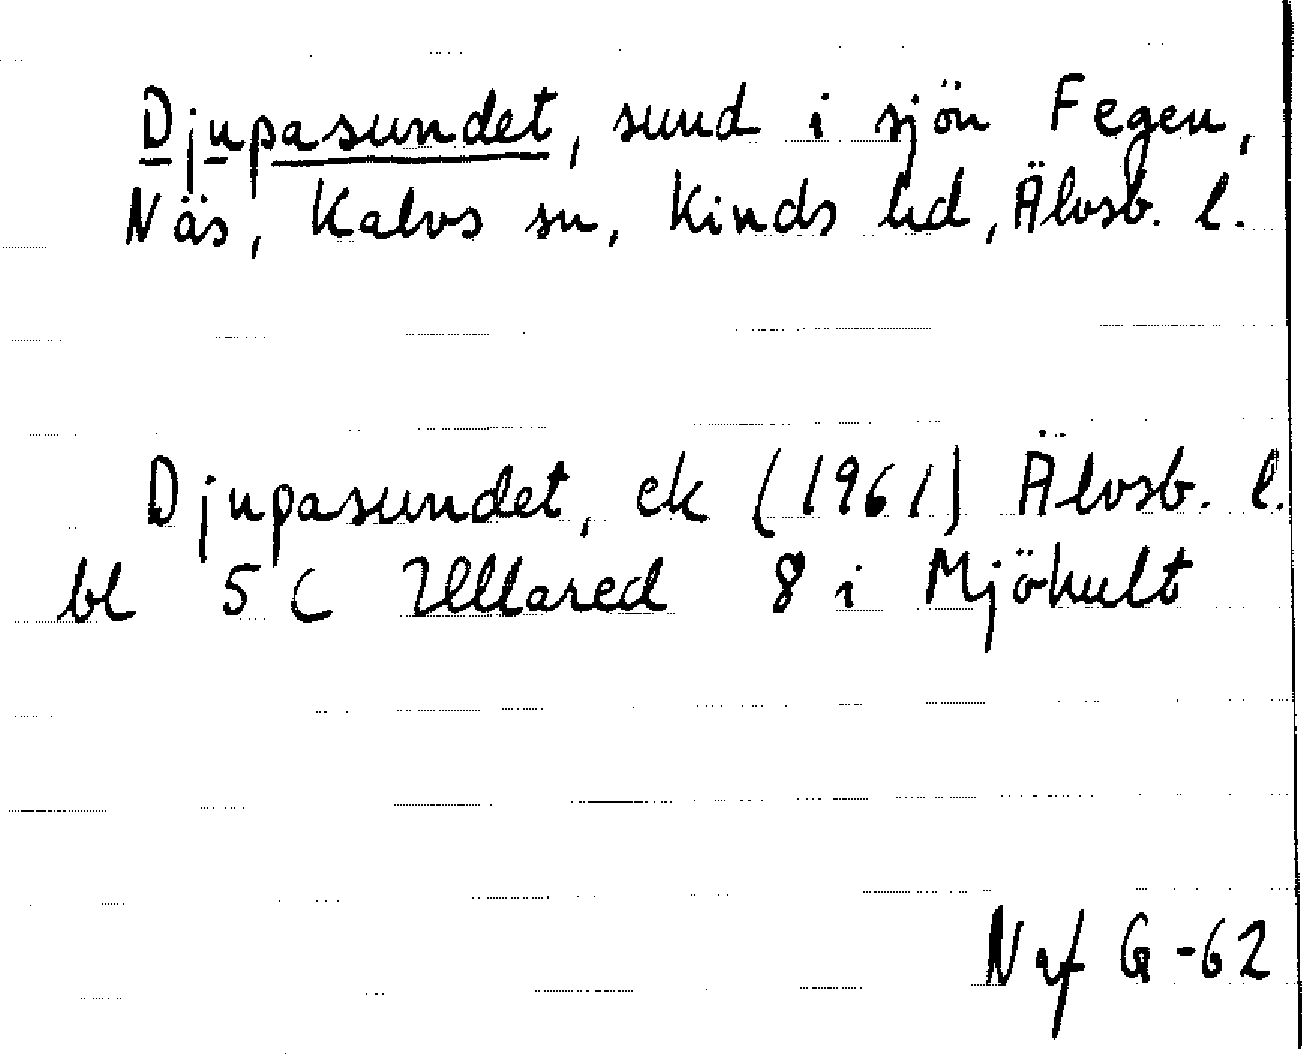 Djupasundet, sund i sjön Fegen,
Näs, Kalvs sn, Kinds hd, Älvsb. l.
Djupasundet, ek (1961) Älvsb. l.
bl 5 C Ullared 8 i Mjöhult
Naf G-62